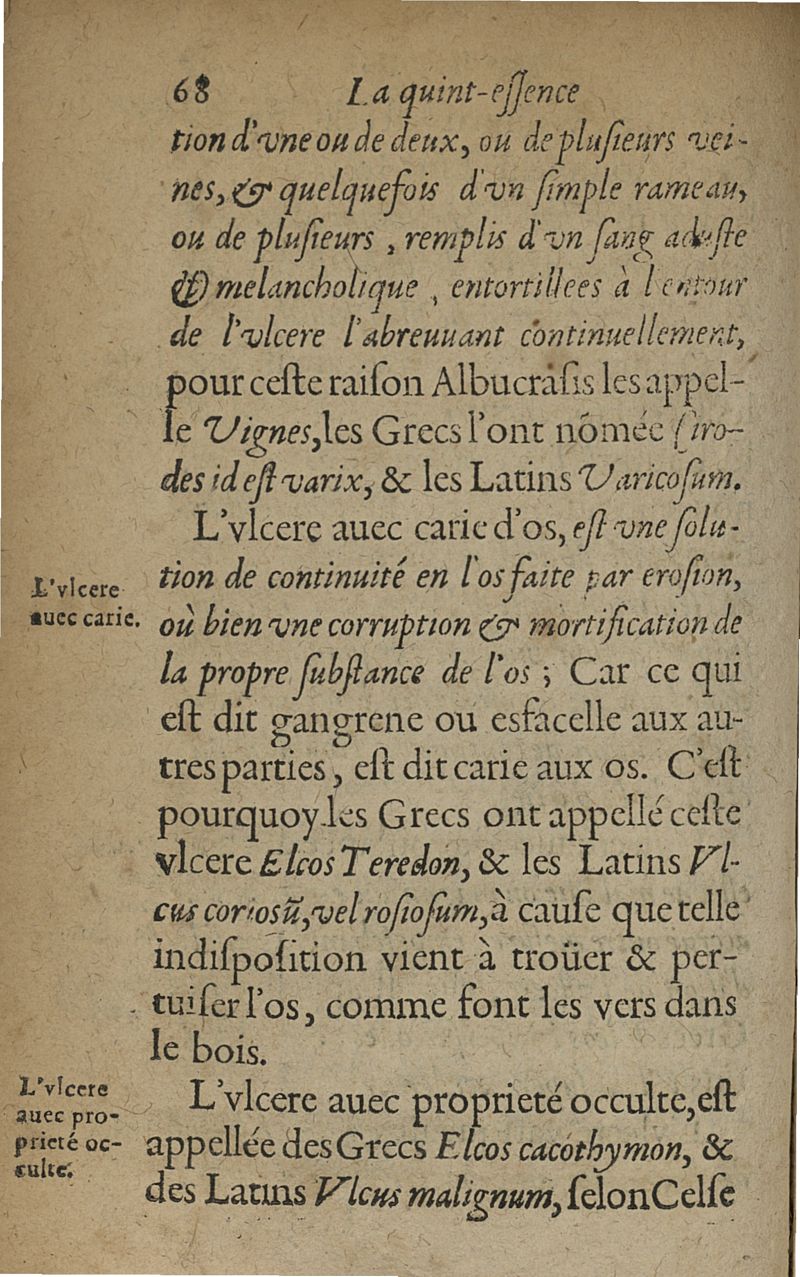 68 La quint-eſſence
tion d'vne ou de deux, ou de pluſieurs vei-
nes, & quelquefois d'vn ſimple rameau,
ou de pluſieurs, remplis d'vn ſang aduſte
& melancholique, entortillees à l'entour
de l'vlcere l'abreuuant continuellement,
pour ceſte raiſon Albucraſis les appel-
le Vignes, les Grecs l'ont nõmée Ciro-
des id eſt varix, & les Latins Varicoſum.
L'vlcere auec carie d'os, eſt vne ſolu-
L'vlcere
auec carie.
tion de continuité en l'os faite par eroſion,
où bien vne corruption & mortification de
la propre ſubſtance de l'os; Car ce qui
eſt dit gangrene ou esfacelle aux au-
tres parties, eſt dit carie aux os. C'eſt
pourquoy les Grecs ont appellé ceſte
vlcere Elcos Teredon, & les Latins Vl-
cus corioſũ, vel roſioſum, à cauſe que telle
indiſpoſition vient à troüer & per-
tuiſer l'os, comme font les vers dans
le bois.
L'vlcere
auec pro-
prieté oc-
culte.
L'vlcere auec proprieté occulte, eſt
appellée des Grecs Elcos cacothymon, &
des Latins Vlcus malignum, ſelon Celſe